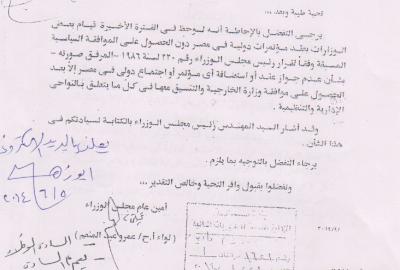 تحية طيبة وبعد ...
يرجى التفضل بالإحاطة أنه لوحظ فى الفترة الأخيرة قيام بعض
الوزارات بعقد مؤتمرات دولية فى مصر دون الحصول على الموافقة السياسية
المسبقة وفقاً لقرار رئيس مجلس الوزراء رقم ٢٢٠ لسنة ١٩٨٦ - المرفق صورته -
بشأن عدم جواز عقد أو استضافة أى مؤتمر أو اجتماع دولى فى مصر إلا بعد
الحصول على موافقة وزارة الخارجية والتنسيق معها فى كل ما يتعلق بالنواحى
الإدارية والتنظيمية .
وقد أشار السيد المهندس رئيس مجلس الوزراء بالكتابة لسيادتكم فى
هذا الشأن .
برجاء التفضل بالتوجيه بما يلزم .
وتفضلوا بقبول وافر التحية وخالص التقدير ...
أمين عام مجلس الوزراء
(لواء أ.ح/ عمرو عبد المنعم)
٢٠١٤/٦/٥